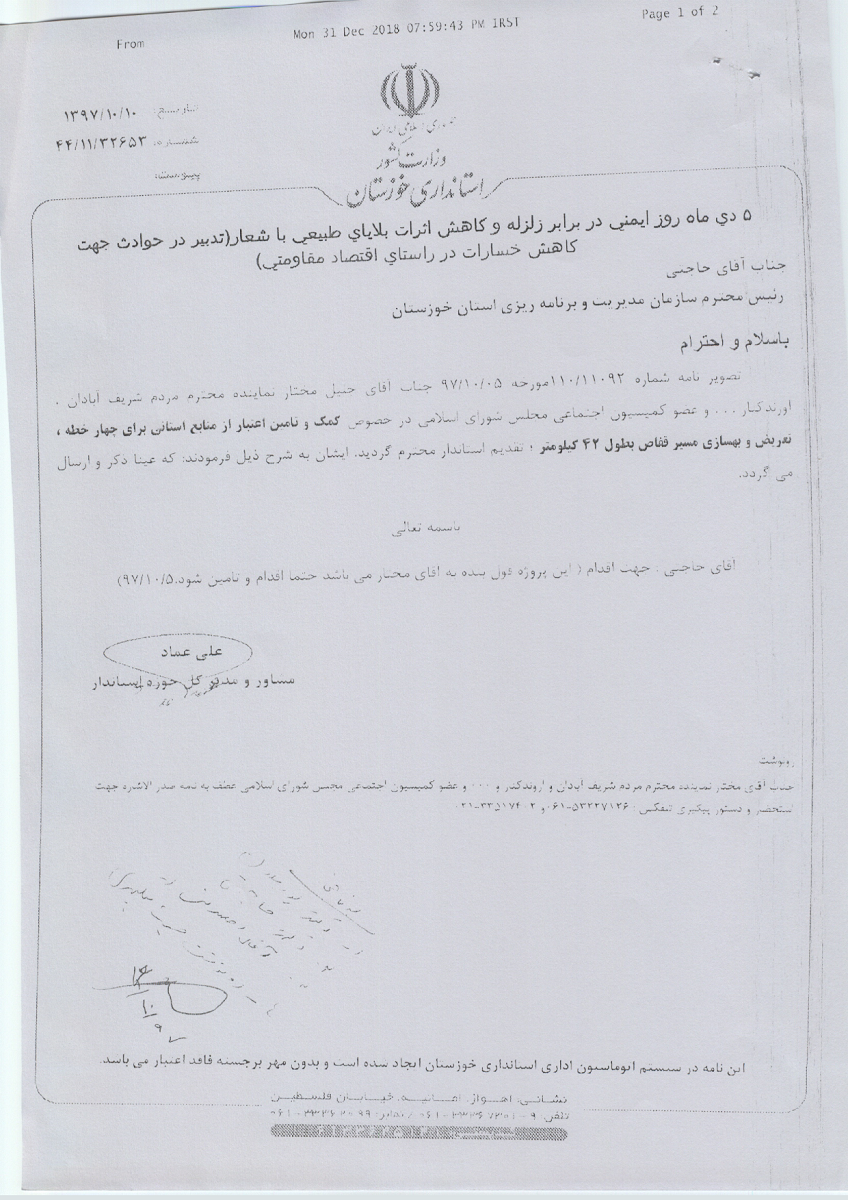 From
Mon 31 Dec 2018 07:59:43 PM IRST
Page 1 of 2
تاریخ: ۱۳۹۷/۱۰/۱۰
شماره: ۴۴/۱۱/۳۲۶۵۳
پیوست:
جمهوری اسلامی ایران
وزارت کشور
استانداری خوزستان
۵ دي ماه روز ايمني در برابر زلزله و كاهش اثرات بلاياي طبيعي با شعار(تدبير در حوادث جهت
كاهش خسارات در راستاي اقتصاد مقاومتي)
جناب آقای حاجتی
رئیس محترم سازمان مدیریت و برنامه ریزی استان خوزستان
باسلام و احترام
تصویر نامه شماره ۱۱۰/۱۱۰۹۲مورخه ۹۷/۱۰/۰۵ جناب آقای جلیل مختار نماینده محترم مردم شریف آبادان ،
اروندکنار ... و عضو کمیسیون اجتماعی مجلس شورای اسلامی در خصوص کمک و تامین اعتبار از منابع استانی برای چهار خطه ،
تعریض و بهسازی مسیر قفاص بطول ۴۲ کیلومتر ؛ تقدیم استاندار محترم گردید. ایشان به شرح ذیل فرمودند: که عینا ذکر و ارسال
می گردد.
باسمه تعالی
آقای حاجتی : جهت اقدام ( این پروژه قول بنده به آقای مختار می باشد حتما اقدام و تامین شود.۹۷/۱۰/۵)
علی عماد
مشاور و مدیر کل حوزه استاندار
رونوشت
جناب آقای مختار نماینده محترم مردم شریف آبادان و اروندکنار و ۰۰۰ و عضو کمیسیون اجتماعی مجلس شورای اسلامی عطف به نامه صدر الاشاره جهت
استحضار و دستور پیگیری تلفکس : ۵۳۲۲۷۱۲۶-۰۶۱ و ۳۳۵۱۷۴۰۲-۰۲۱
۱۶
۱۰
۹۷
این نامه در سیستم اتوماسیون اداری استانداری خوزستان ایجاد شده است و بدون مهر برجسته فاقد اعتبار می باشد.
نشانی: اهواز، امانیه، خیابان فلسطین